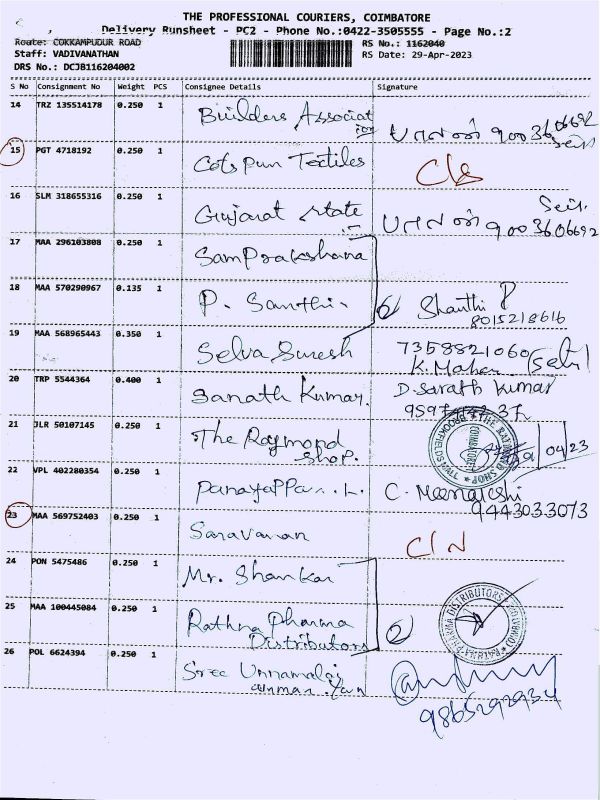 THE PROFESSIONAL COURIERS, COIMBATORE
Delivery Runsheet - PC2 - Phone No.:0422-3505555 - Page No.:2
Route: COKKAMPUDUR ROAD
RS No.: 1162040
Staff: VADIVANATHAN
RS Date: 29-Apr-2023
DRS No.: DCJB116204002
S No Consignment No Weight PCS Consignee Details Signature
14 TRZ 135514178 0.250 1 Builders Associat
15 PGT 4718192 0.250 1 Cots pun Textiles
16 SLM 318655316 0.250 1 Gujarat state
9003606692
17 MAA 296103808 0.250 1 Samprakshana
18 MAA 570290967 0.135 1 P. Santhi Shanthi P
8015218616
19 MAA 568965443 0.350 1 Selva Suresh 7358821060
20 TRP 5544364 0.400 1 Sarath Kumar. D. Sarath Kumar
21 JLR 50107145 0.250 1 The Raymond
Shop.
THE RAYMOND SHOP
COIMBATORE
04/23
22 VPL 402280354 0.250 1 Panayappan. L. C. Meenakshi
9443033073
23 MAA 569752403 0.250 1 Saravanan C/N
24 PON 5475486 0.250 1 Mr. Shankar
25 MAA 100445084 0.250 1 Rathna Pharma
Distributors
26 POL 6624394 0.250 1 Sree Unnamalai